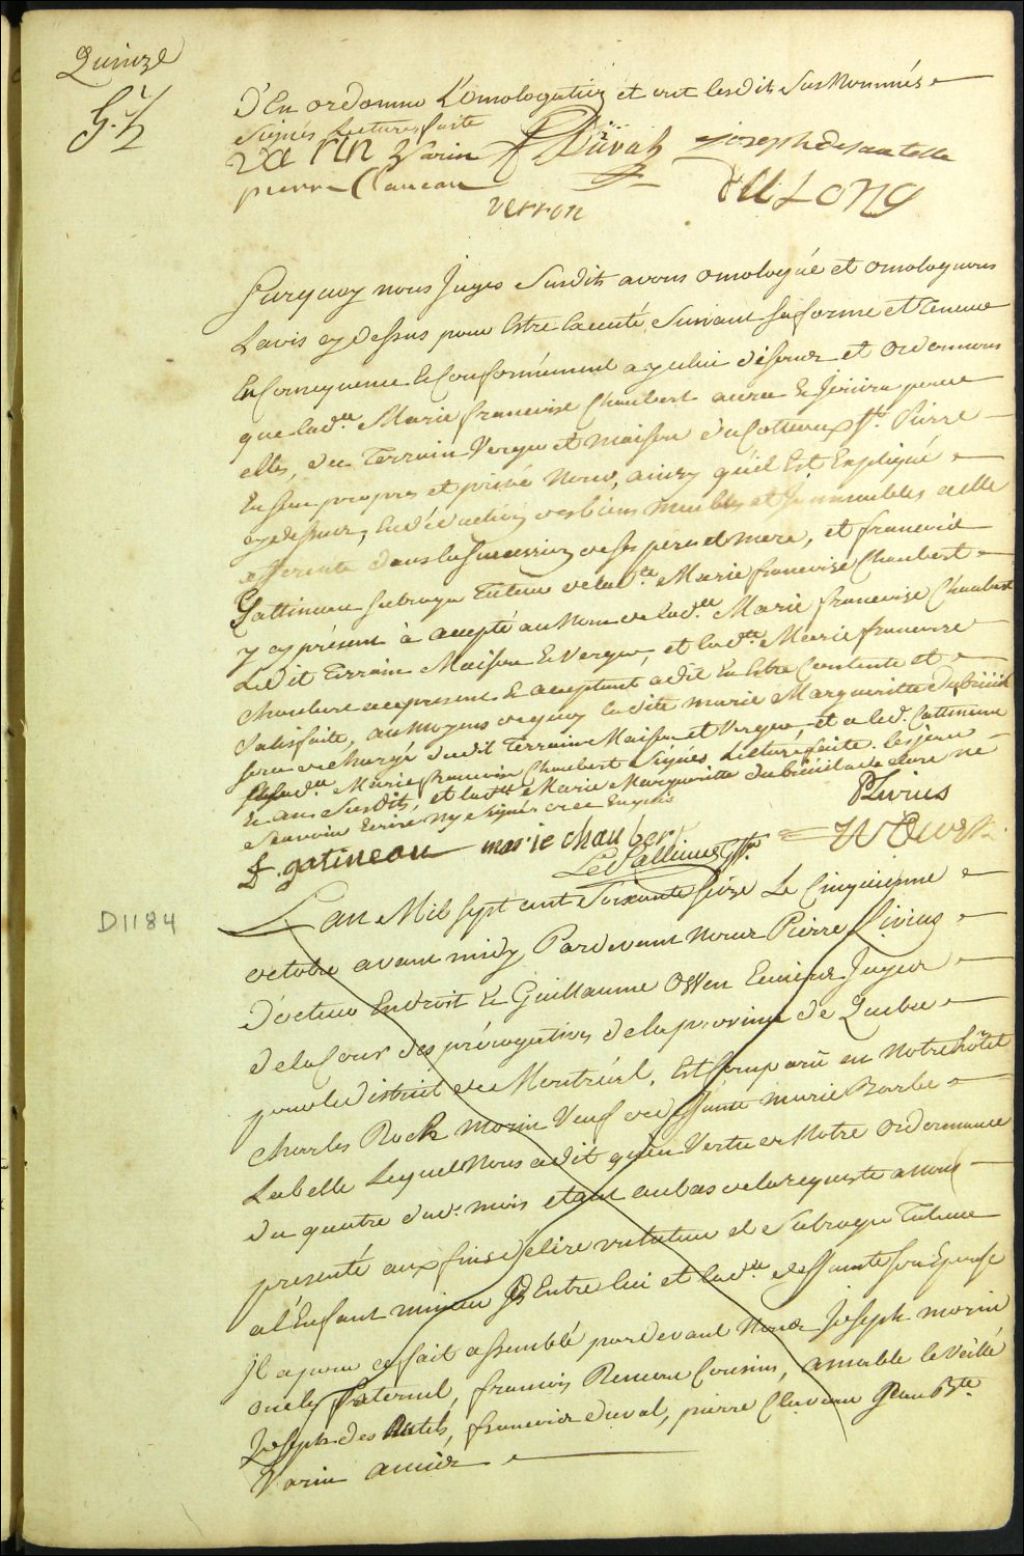 Quinze
G. Z
D'En ordonner L'omologation et ont lesdits Susnommés
Signés Lecture faite
Varin Varin Duval joseph desautelle
pierre Claveau
verron duLong
Surquoy nous Juges Susdits avons omologué et omologuons
Lavis cy dessus pour Estre Executé Suivant sa forme et teneur
En Consequence & Conformément a yceluy déferons et ordonnons
que lad.lle Marie francoise Chaubert aura & Jouira pour
elles, du Terrain Verger et maison du Cotteaux St. Pierre
En son propre et privé Nom, ainsy quil Est Expliqué
cy dessus, En déduction des biens Meubles et Immeubles a elle
afferente dans la Succession de ses pere et mere, et francois
Gattineau Subrogé Tuteur de lad.te Marie francoise Chaubert
y cy présent à accepté au Nom de lad.lle Marie francoise Chaubert
Ledit Terrain Maison & Verger, et lad.te Marie francoise
Chaubert cy présent & acceptant a dit En Estre Contente et
Satisfaite, au Moyens de quoy ladite marie Margueritte dubréüil
sera dechargé dudit Terrain Maison et Verger, et a led. Cattineau
lad.lle Marie francoise Chaubert Signés Lecture faite. les jour
& ans Susdits, et lad.lle Marie Margueritte dubréüil a declaré ne
Scavoir Ecrire Ny Signer de ce Enquis
PLivius
f. gatineau marie chauber
LePallieur Gfr. WOwen
D1184
L'an Mil Sept cent Soixante Seize Le Cinquieme
octobre avant midy Pardevant Nous Pierre Livius
Docteur En droit & Guillaume Owen Ecuiers Juges
de la Cour des prérogatives de la province de Quebec
pour le district de Montréal, Est Comparû en Notre hôtel
Charles Rock Morin Veuf de deffunte marie Barbe
Labelle Lequel Nous a dit qu'en Vertu de Notre ordonnance
du quatre dud. mois etant au bas de la requeste a nous
presenté aux fins d'elire un tuteur et Subrogé Tuteur
a l'Enfant mineur Entre lui et lad.te deffunte son Epouse
Il a pour cy fait assemblé pardevant Nous Joseph morin
oncle paternel, francois Cousins, amable leveillé
Joseph des Autels, francois duval, pierre Claveau Jean Bte.
Varin amis